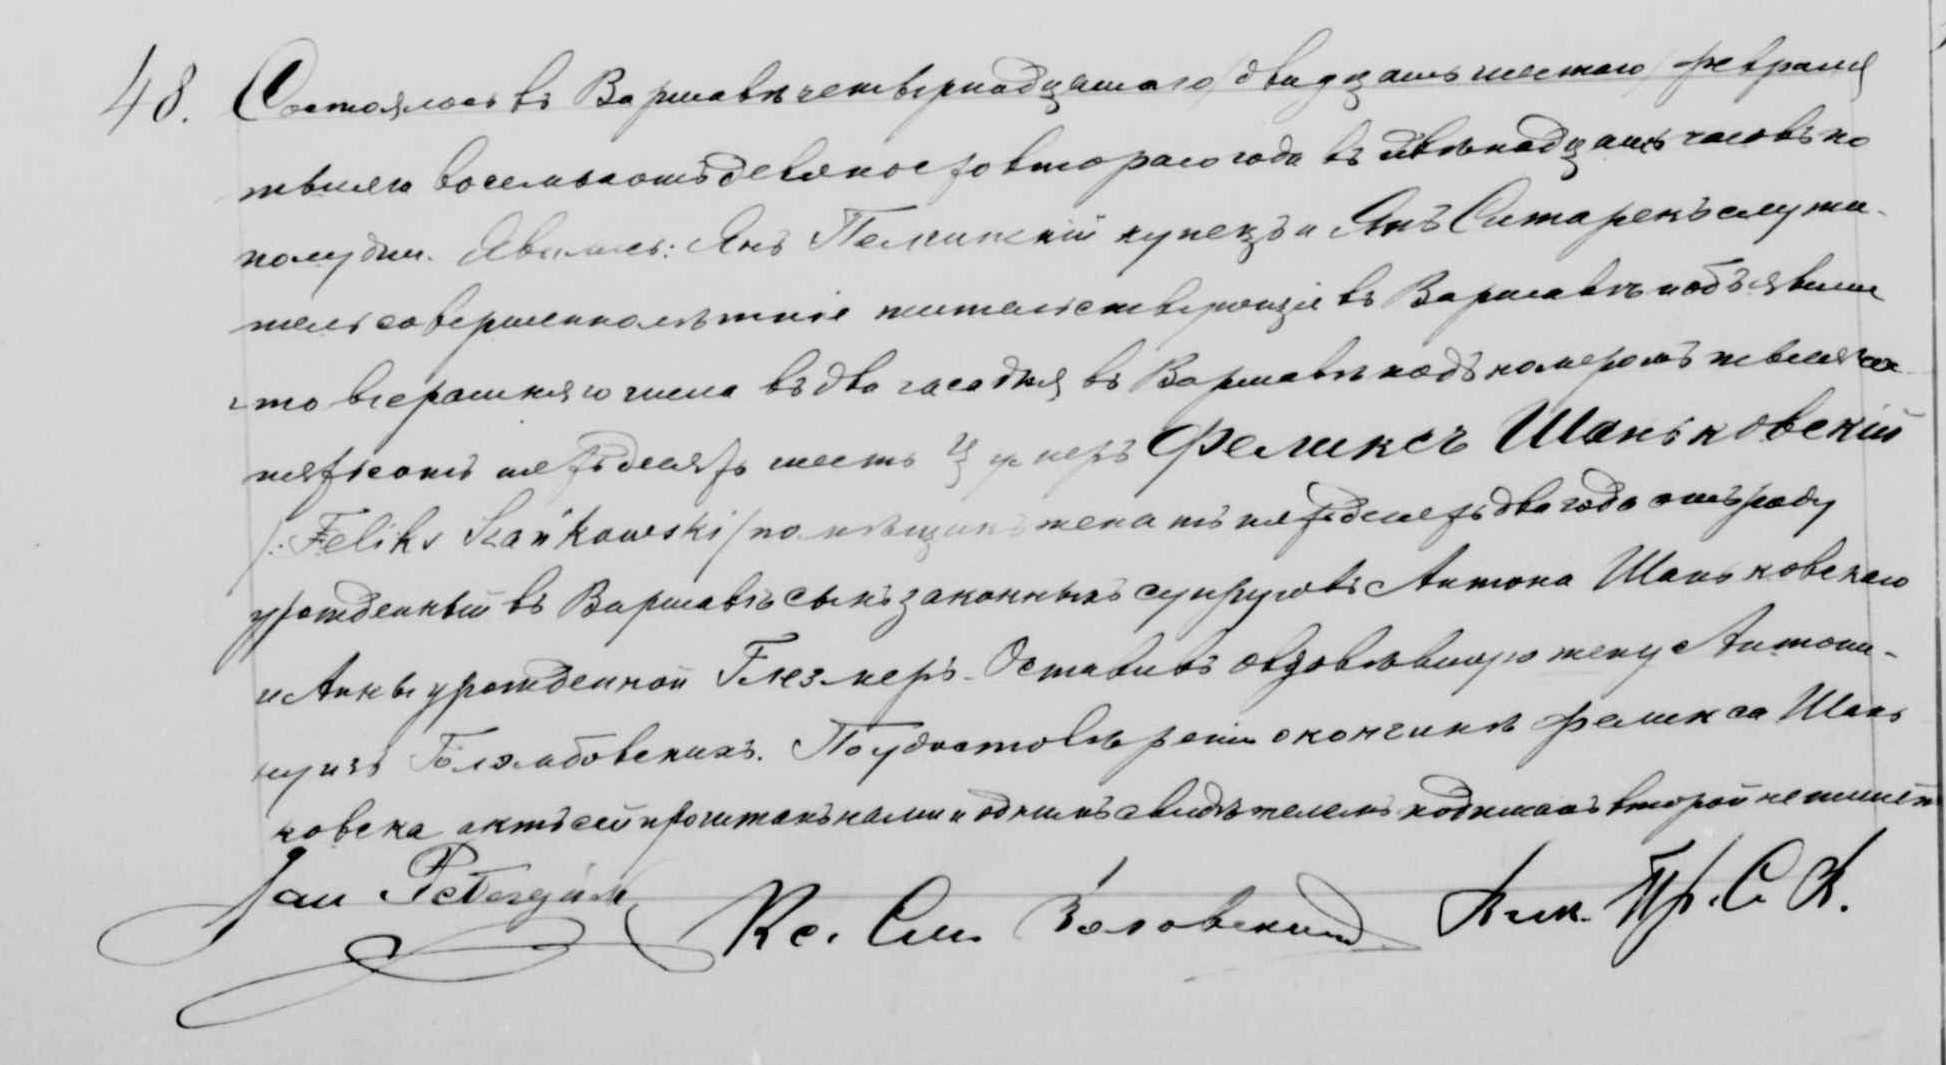 48. Состоялось въ Варшавѣ четырнадцатаго /двадцать шестаго/ февраля
тысяча восемьсотъ девяносто втораго года въ двѣнадцать часовъ по
полудни. Явились: Янъ купецъ и Янъ Ситарекъ служи-
тель совершеннолѣтніе жительствующіе въ Варшавѣ и объявили
что вчерашняго числа въ два часа дня въ Варшавѣ подъ номеромъ тысяча
пятьсотъ пятьдесятъ шесть Ц умеръ Феликсъ Шаньковскій
/:Feliks Szańkowski/ помѣщикъ женатъ пятьдесятъ два года отъ роду
урожденный въ Варшавѣ сынъ законныхъ супруговъ Антона Шаньковскаго
и Анны урожденной Глезмеръ. Оставивъ овдовѣвшую жену Антони-
ну изъ По удостовѣреніи о кончинѣ Феликса Шань
ковска актъ сей прочитанъ нами и однимъ свидѣтелемъ подписанъ второй не пишетъ
Jan
Кс. Пр. С. К.